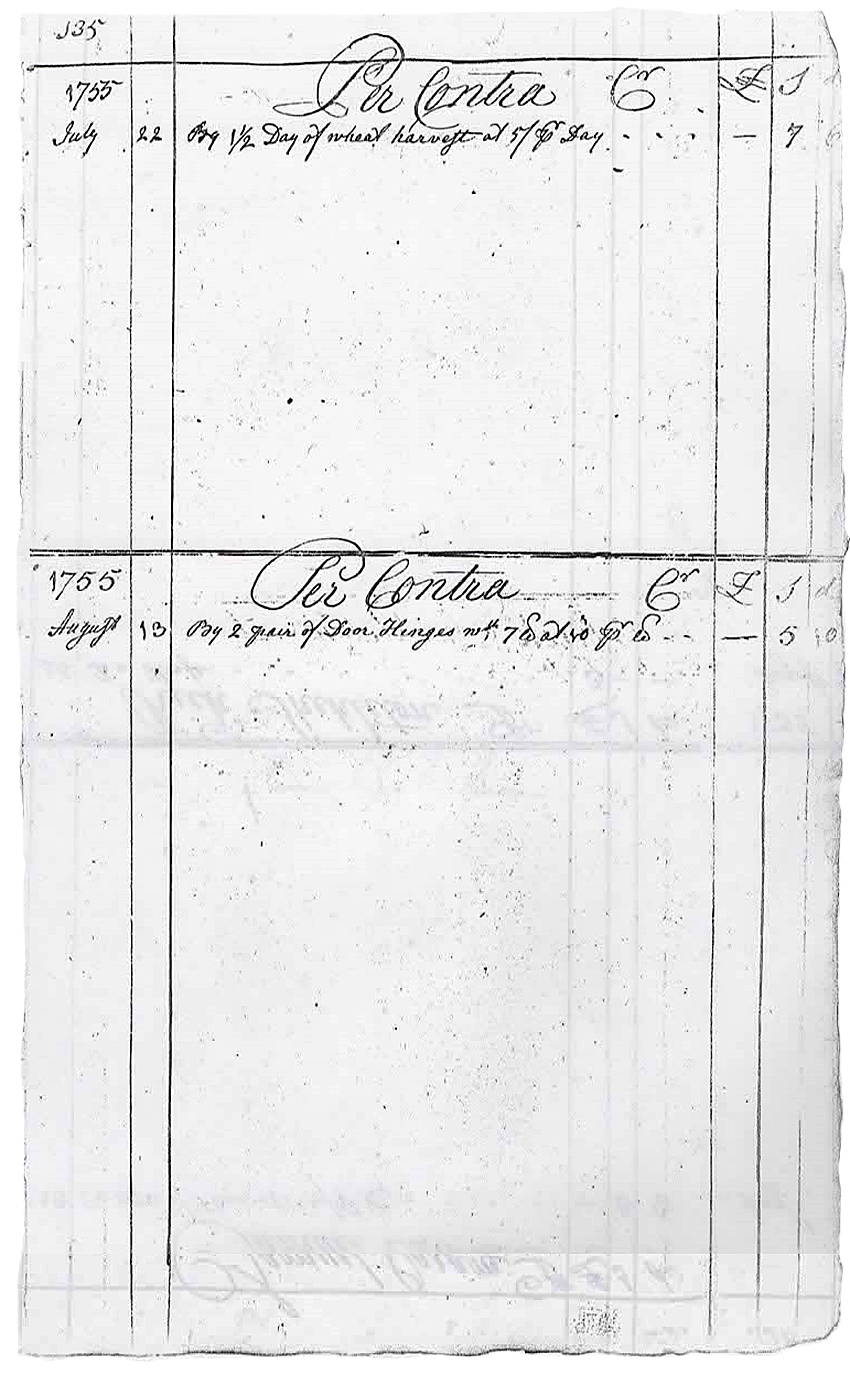 135
1755 Per Contra Cr £ S d
July 22 By 1½ Day of wheat harvest at 5/ Pr Day - - - - — 7 6
1755 Per Contra Cr £ S d
August 13 By 2 pair of Door Hinges wt 7 lb at 10 Pr lb - - — 5 10